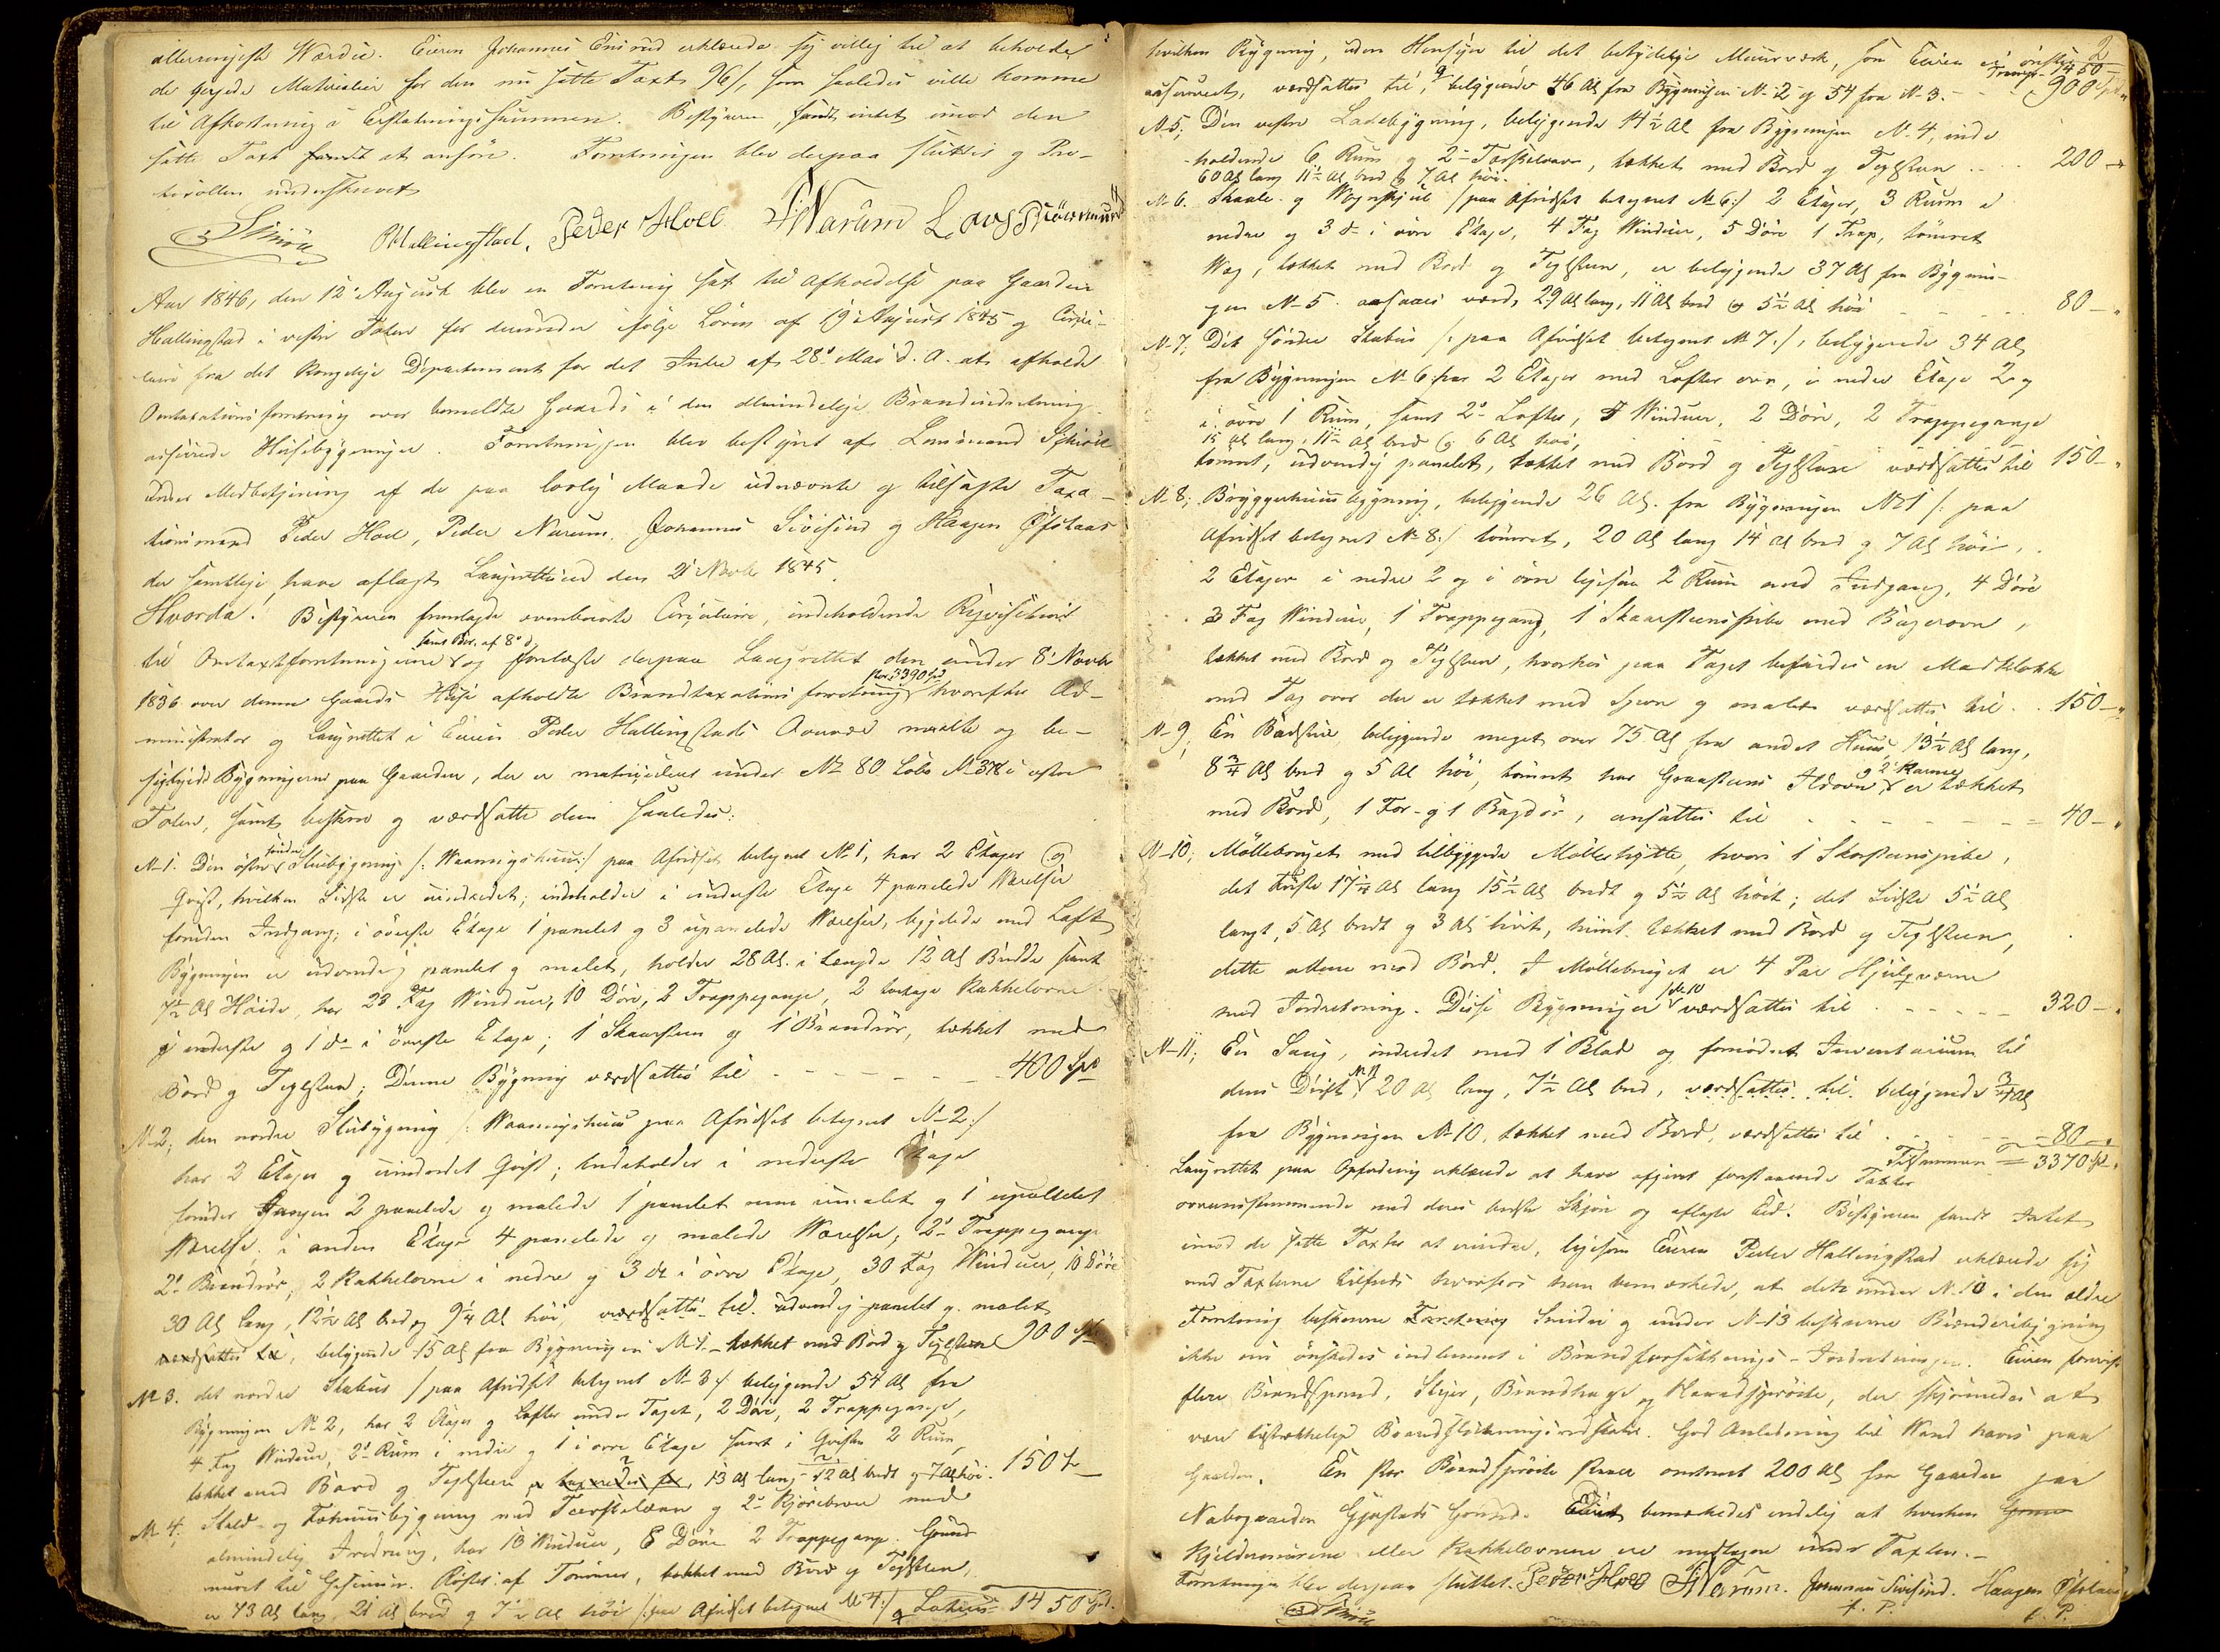 allerringeste Værdie. Eieren Johannes Ensrud erklærede sig villig til at beholde
de øvrige Materialier for den nu satte Taxt 96 s, som saaledes ville komme
til Afkortning i Erstatningssummen. Bestyreren fandt intet imod den
satte Taxt fandt at anføre. Forretningen blev derpaa sluttet og Pro-
tocollen underskrevet
PHallingstad, Peder Hoel PNarum Lars
Aar 1846, den 12te August blev en Forretning sat til Afholdelse paa Gaarden
Hallingstad i vestre Toten for derunder ifølge Loven af 19 August 1845 og Circu-
laire fra det Kongelige Departement for det Indre af 28de Mai d. A. at afholde
Omtaxationsforretning over bemeldte Gaards i den almindelige Brandindretning
assurerede Huusebygninger. Forretningen blev bestyret af Lensmand
under Medbetjening af de paa lovlig Maade udnævnte og tilsagte Taxa-
tionsmænd Peder Hoel, Peder Narum, Johannes Sivesind og Haagen Øfstaas
der samtlige have aflagt Laugrettesed den 21 Novbr 1845.
Hvorda! Bestyreren fremlagde ovenberørte Circulaire, indeholdende Reqvisition
samt Brev af 8de d.
til Omtaxtforretningerne og forelæste derpaa Laugrettet den under 8 Novbr
stor 3390 Spd
1836 over denne Gaards Huse afholdte Brandtaxationsforretning, hvorefter Ad-
ministrator og Laugrettet i Eieren Peder Hallingstads Overvær maalte og be-
sigtigede Bygningerne paa Gaarden, der er matriculeret under No 80 Løbe No 378 i vestre
Toten, samt beskrev og værdsatte dem saaledes:
søndre
No 1. Den østre Stuebygning /: Vaaningshuus:/ paa Afridset betegnet No 1, har 2 Etager og
Qvist, hvilken Sidste er uindredet; indeholder i underste Etage 4 panelede Værelser
foruden Indgang; i øverste Etage 1 panelet og 3 upanelede Værelser, ligeledes med Loft
Bygningen er udvendig panelet og malet, holder 28 Al. i Længde 12 Al Bredde samt
7½ Al Høide, har 23 Fag Vinduer, 10 Døre, 2 Trappegange, 2 Kakkelovne
i underste og 1 do i øverste Etage; 1 Skaarsteen og 1 Brandrør, tækket med
Bord og Teglsteen; Denne Bygning værdsattes til - - - - 400 Spd
No 2; den nordre Stuebygning /: Vaaningshuus paa Afridset betegnet No 2:/
har 2 Etager og uindredet Qvist; Indeholder i nederste Etage
foruden Gangen 2 panelede og malede 1 panelet men umalet og 1 upanelet
Værelse, i anden Etage 4 panelede og malede Værelser, 2de Trappegange
2de Brandrør, 2 Kakkelovne i nedre og 3 do i øvre Etage, 30 Fag Vinduer, 10 Døre
30 Al lang, 12½ Al bred og 9¼ Al høi, værdsattes til udvendig panelet og malet
værdsattes til, beliggende 15 Al fra Bygningen No 1. tækket med Bord og Teglsteen 900 Spd
No 3. det nordre Stabur /: paa Afridset betegnet No 3:/ beliggende 54 Al fra
Bygningen No 2, har 2 Etager og Lofter under Taget, 2 Døre, 2 Trappegange,
4 Fag Vinduer, 2de Rum i nedre og 1 i øvre Etage samt i Qvisten 2 Rum,
tækket med Bord og Teglsteen 13 Al lang 12 Al bredt og 7 Al høi. 150
No 4; Stald- og Fæhuusbygning med Tærskelaave og 2de Kjørebroer med
almindelig Indredning, har 13 Vinduer, 8 Døre 2 Trappegange. Grund
muret til Gesimsen. Røster af Tømmer, tækket med Bord og Teglsteen,
er 73 Al lang, 21 Al bred og 7½ Al høi /: paa Afridset betegnet No 4:/ Latus 1450 Spd.
2
hvilken Bygning, uden Hensyn til det betydelige Muurværk, som Eieren ei ønsker
Transp. 1450
assureret, værdsattes til, beliggende 46 Al fra Bygningen No 2 og 54 fra No 3. - - 900 Spd
No 5; Den vestre Ladebygning, beliggende 14½ Al fra Bygningen No 4, inde
holdende 6 Rum og 2de Tærskelaaver, tækket med Bord og Teglsteen - - 200 -
60 Al lang 11½ Al bred og 7 Al høi.
No 6. Skaale- og Vognskjul /: paa Afridset betegnet No 6:/ 2 Etager, 3 Rum i
nedre og 3 do i øvre Etage, 4 Fag Vinduer, 5 Døre 1 Trap, tømret
Væg, tækket med Bord og Teglsteen, er beliggende 37 Al fra Bygnin-
gen No 5 ansaaes værd, 29 Al lang, 11 Al bred og 5½ Al høi - - - 80 -
No 7; Det søndre Stabur /: paa Afridset betegnet No 7:/, beliggende 34 Al
fra Bygningen No 6 har 2 Etager med Lofter over, i nedre Etage 2 og
i øvre 1 Rum, samt 2de Lofter, 7 Vinduer, 2 Døre, 2 Trappegange
15 Al lang, 11½ Al bred og 6 Al høi,
tømret, udvendig panelet, tækket med Bord og Teglsteen værdsattes til 150 -
No 8; Bryggerhuusbygning, beliggende 26 Al. fra Bygningen No 1 /: paa
Afridset betegnet No 8:/ tømret, 20 Al lang 14 Al bred og 7 Al høi,
2 Etager i nedre 2 og i øvre ligesaa 2 Rum med Indgang, 4 Døre
3 Fag Vinduer, 1 Trappegang, 1 Skaarsteenspibe med Bagerovn,
tækket med Bord og Teglsteen, hvorhos paa Taget befindes en Madklokke
med Tag over der er tækket med Spon og malet værdsattes til - 150 -
No 9; En Badstue, beliggende meget over 75 Al fra andet Huus, 13½ Al lang,
og 2de Karme
8¾ Al bred og 5 Al høi, tømret har Graasteens Ildovn er tækket
med Bord, 1 For- og 1 Bagdør, ansattes til - - - - - 40 -
No 10; Møllebruget med tilbyggede Møllerhytte, hvori 1 Skorsteenspibe,
det Første 17¼ Al lang 15½ Al bredt og 5½ Al høit; det Sidste 5½ Al
langt, 5 Al bredt og 3 Al høit, hiint tækket med Bord og Teglsteen,
dette allene med Bord. I Møllebruget er 4 Par Hjulqværne
No 10
med Indretning. Disse Bygninger værdsattes til - - - - - 320 -
No 11; En Saug, indredet med 1 Blad og fornødent Inventarium til
dens Drift, 20 Al lang, 7½ Al bred, værdsattes til beliggende ¾ Al
fra Bygningen No 10, tækket med Bord, værdsattes til - - - 80 -
Tilsammen = 3370 Spd.
Laugrettet paa Opfordring erklærede at have afgivet forestaaende Taxter
overeensstemmende med deres bedste Skjøn og aflagte Eed. Bestyreren fandt Intet
imod de satte Taxter at erindre, ligesom Eieren Peder Hallingstad erklærede sig
med Taxterne tilfreds hvorhos han bemærkede, at dette under No 10 i den ældre
Forretning beskrevne Forretning Smidie og under No 13 beskrevne Brænderibygning
ikke nu ønskedes indlemmet i Brandforsikrings-Indretningen. Eieren foreviste
flere Brandspand, Stiger, Brandhage og Haandsprøite, der skjønnedes at
være tilstrækkelige Brandslukningsredskaber. God Anledning til Vand haves paa
Gaarden. En stor Brandsprøite staaer omtrent 200 Al fra Gaarden paa
Nabogaarden Gjøstads Grund. bemærkedes endelig at hverken Grund
Kjeldermurene eller Kakkelovnene ere medtagne under Taxten.-
Forretningen blev derpaa sluttet. Peder Hoel PNarum. Johannes Sivesind. Haagen Øfstaas
f. P. f. P.